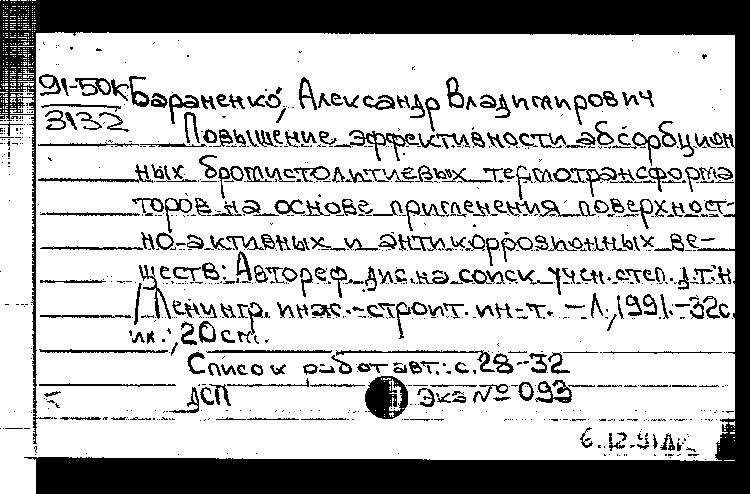 91-50к Бараненко, Александр Владимирович
3132
Повышение эффективности абсорбцион
ных бромистолитиевых термотрансформа
торов на основе применения поверхност-
но-активных и антикоррозионных ве-
ществ: Автореф. дис. на соиск учен. степ. д.т.н
/Ленингр. инж.-строит. ин-т. - Л., 1991.-32с.
ил.; 20 cm.
Список работ авт.: с.28-32
ДСП Экз № 093
6.12.91